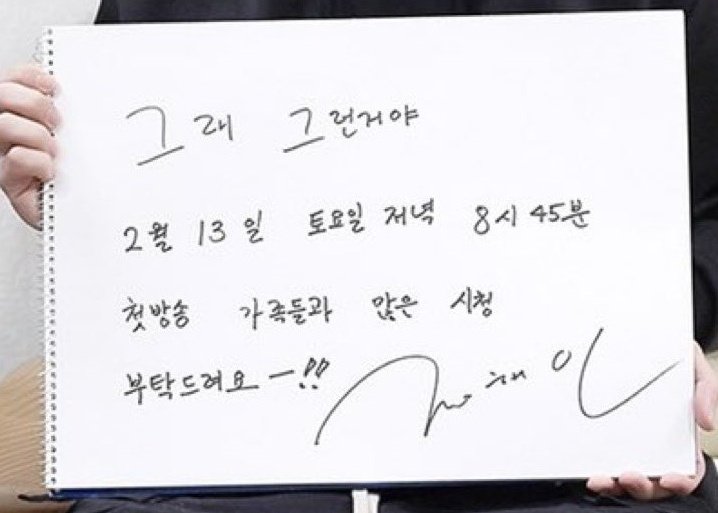 그래 그런거야
2월 13일 토요일 저녁 8시 45분
첫방송 가족들과 많은 시청
부탁드려요ㅡ!!